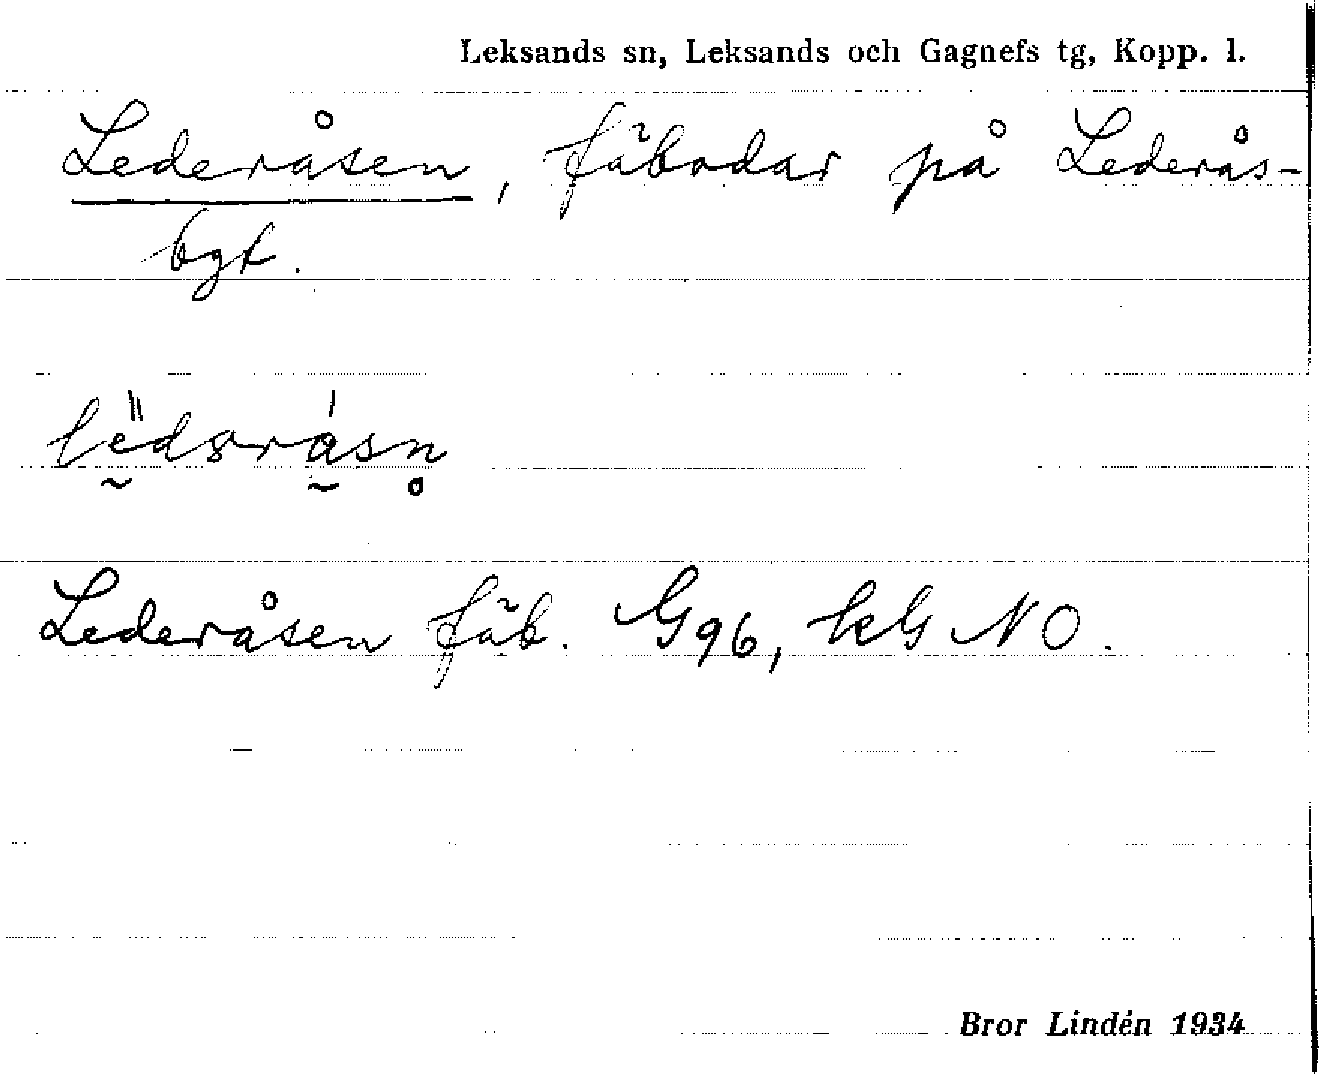 Leksands sn, Leksands och Gagnefs tg, Kopp. l.
Lederåsen, fäbodar på Lederås-
bgt.
Lederåsen fäb. G96, kG NO.
Bror Lindén 1934